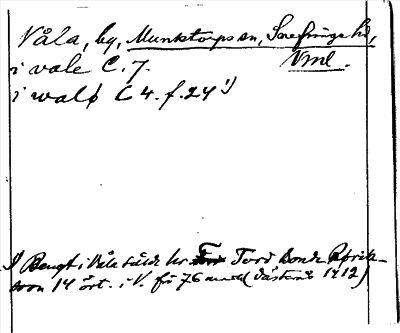 Våla, by, Munktorps sn, Snefringe hd,
i vale C. 7. Vml.
i walø C 4. f. 24 1)
1) Bengt i Våla sålde hr Tord Bonde
14 ört. i V. för 76 mark (Västerås 1412)